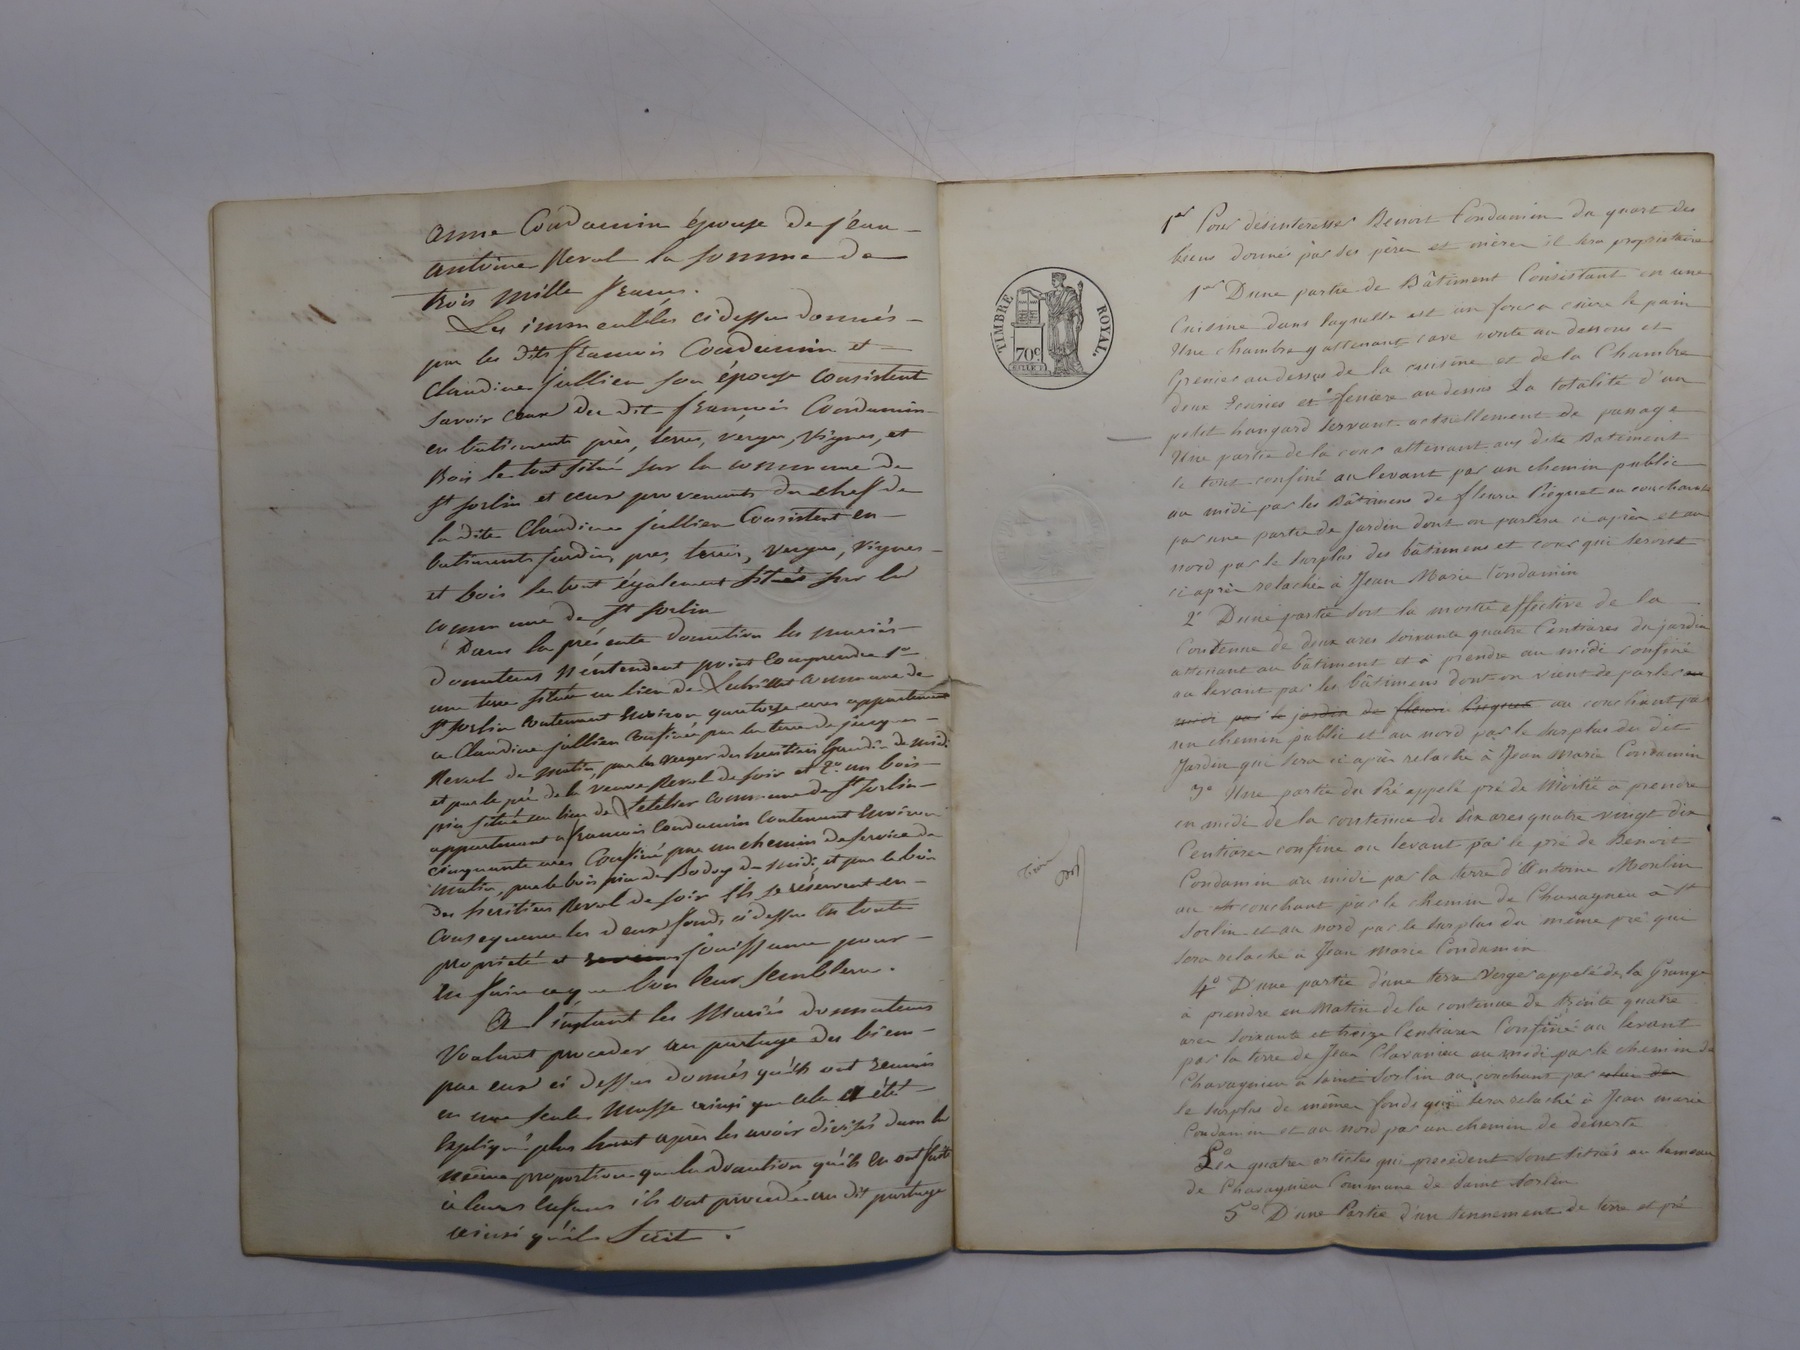 anne Condamin épouse de jean
antoine Reval la somme de
trois mille francs.
Les immeubles ci dessus donnés
par les dits francois Condamin et
Claudine jullien son épouse consistent
savoir ceux du dit françois Condamin
en bâtiments près, terres, verger, vignes, et
Bois le tout situé sur la commune de
St sorlin et ceux provenants du chef de
la dite Claudine jullien Consistent en
batiments jardin, pres, terres, vergers, vignes
et bois le tout également situés sur la
commune de St sorlin
Dans la présente donation les mariés
donateurs n'entendent point comprendre 1o
une terre située au lieu de commune de
St sorlin contenant environ quatorze ares appartenant
a Claudine jullien confinée par la terre de jacques
Reval de matin, par le verger des heritiers Gaudin de midi
et par le pré de la veuve Reval de soir et 2o un bois
pin situé au lieu de commune de St sorlin
appartenant a francois Condamin contenant environ
cinquante ares Confiné par un chemin de service de
matin, par le bois pin de de midi, et par le bois
des heritiers Reval de soir ils se réservent en
consequence les deux fonds ci dessus en toute
propriété et jouissance pour
en faire ce que bon leur semblera.
A l'instant les Mariés donnateurs
Voulant proceder au partage des biens
par eux ci dessus donnés qu'ils ont reunis
en une seule masse ainsi que cela a été
expliqué plus haut après les avoir divisés dans la
même proportion que la donation qu'ils en ont faite
à leurs enfans ils ont procédé au dit partage
ainsi qu'il Suit.
TIMBRE ROYAL.
70c.
1er Pour désinteresser Benoit Condamin du quart des
biens donnés par ses père et mère il sera propriétaire
1er D'une partie de Bâtiment Consistant en une
Cuisine dans laquelle est un four a cuire le pain
Une chambre y attenant cave voute au dessous et
Grenier au dessus de la cuisine et de la Chambre
deux Ecuries et fenière au dessus La totalité d'un
petit hangard servant actuellement de passage
Une partie de la cour attenant aux dits Batiment
le tout confiné au levant par un chemin public
au midi par les Bâtimens de fleurie Piequet au couchant
par une partie de Jardin dont on parlera ci après et au
nord par le surplus des bâtimens et cour qui seront
ci après relachés à Jean Marie Condamin
2o D'une partie soit la moitié effective de la
Contenue de deux ares soixante quatre Centiares du jardin
attenant au bâtiment et à prendre au midi confiné
au levant par les bâtimens dont on vient de parler au
midi par le jardin de fleurie Piequet au couchant par
un chemin public et au nord par le surplus du dit
Jardin qui sera ci après relaché à Jean Marie Condamin
3o Une partie du Pré appelé pré de Moitié a prendre
en midi de la contenue de six ares quatre vingt dix
Centiares confiné au levant par le pré de Benoit
Condamin au midi par la terre d'Antoine Moulin
au couchant par le chemin de Chavagneu a St
Sorlin et au nord par le surplus du même pré qui
sera relaché à Jean Marie Condamin
4o D'une partie d'une terre Verger appelé de la Grange
à prendre en Matin de la contenue de trente quatre
ares soixante et treize Centiares Confiné au levant
par la terre de Jean Clavanieu au midi par le chemin de
Chavagnieu a Saint Sorlin au couchant par
le surplus de même fonds qui sera relaché à Jean marie
Condamin et au nord par un chemin de desserte
Les quatre articles qui précèdent sont situés au hameau
de Chavagnieu Commune de Saint Sorlin
5o D'une Partie d'un tennement de terre et pré